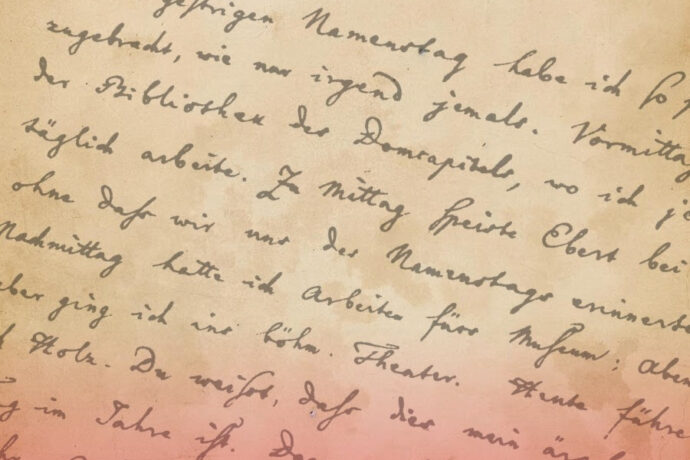 gestrigen Namenstag habe ich so
zugebracht, wie nur irgend jemals. Vormittag
der Bibliothek des Domcapitels, wo ich je
täglich arbeite. Zu Mittag speiste Ebert bei
ohne daß wir uns des Namenstags erinnert
Nachmittag hatte ich Arbeiten fürs Museum; aben
aber ging ich ins böhm. Theater. Heute führe
Holz. Du weißt, daß dies mein
im Jahre ist.